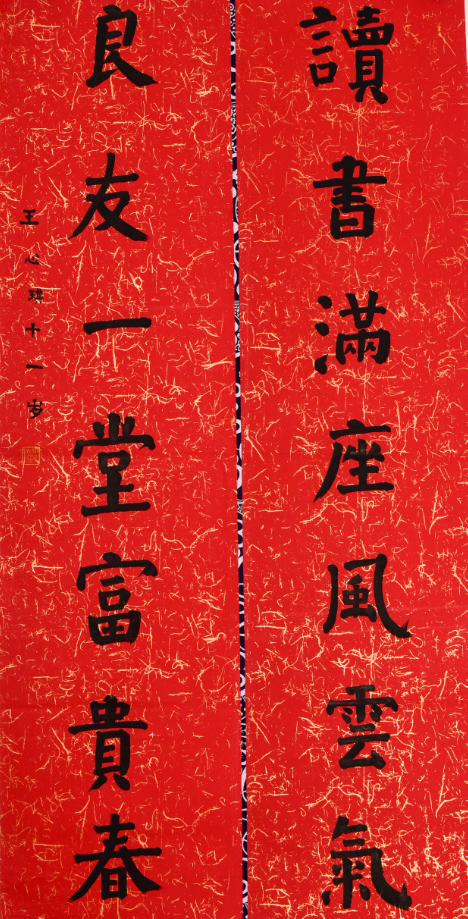 讀書滿座風雲氣
良友一堂富貴春
王心琪十一岁